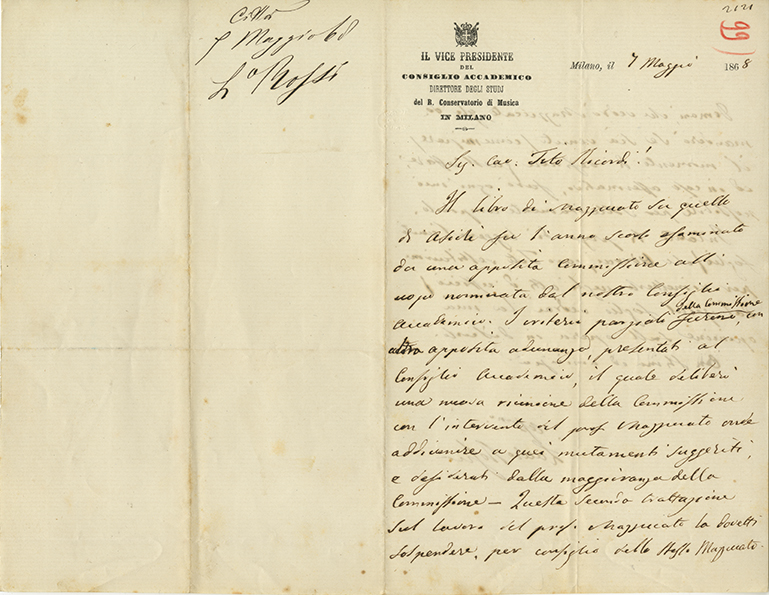 Città
7 Maggio 68
L° Rossi
2121
99
IL VICE PRESIDENTE
DEL
CONSIGLIO ACCADEMICO
DIRETTORE DEGLI STUDJ
del R. Conservatorio di Musica
IN MILANO
Milano, il 7 Maggio 1868
Sig. Cav. Tito Ricordi!
Il libro di Mazzucato su quello
di Asioli fu l'anno scorso esaminato
da una apposita Commissione all'
uopo nominata dal nostro Consiglio
Accademico. I criteri parziali della Commissione furono, con
altra apposita adunanza, presentati al
Consiglio Accademico, il quale deliberò
una nuova riunione della Commissione
con l'intervento del prof. Mazzucato onde
addivenire a quei mutamenti suggeriti,
e desiderati dalla maggioranza della
Commissione – Questa seconda trattazione
sul lavoro del prof. Mazzucato la dovetti
sospendere, per consiglio dello stesso Mazzucato.